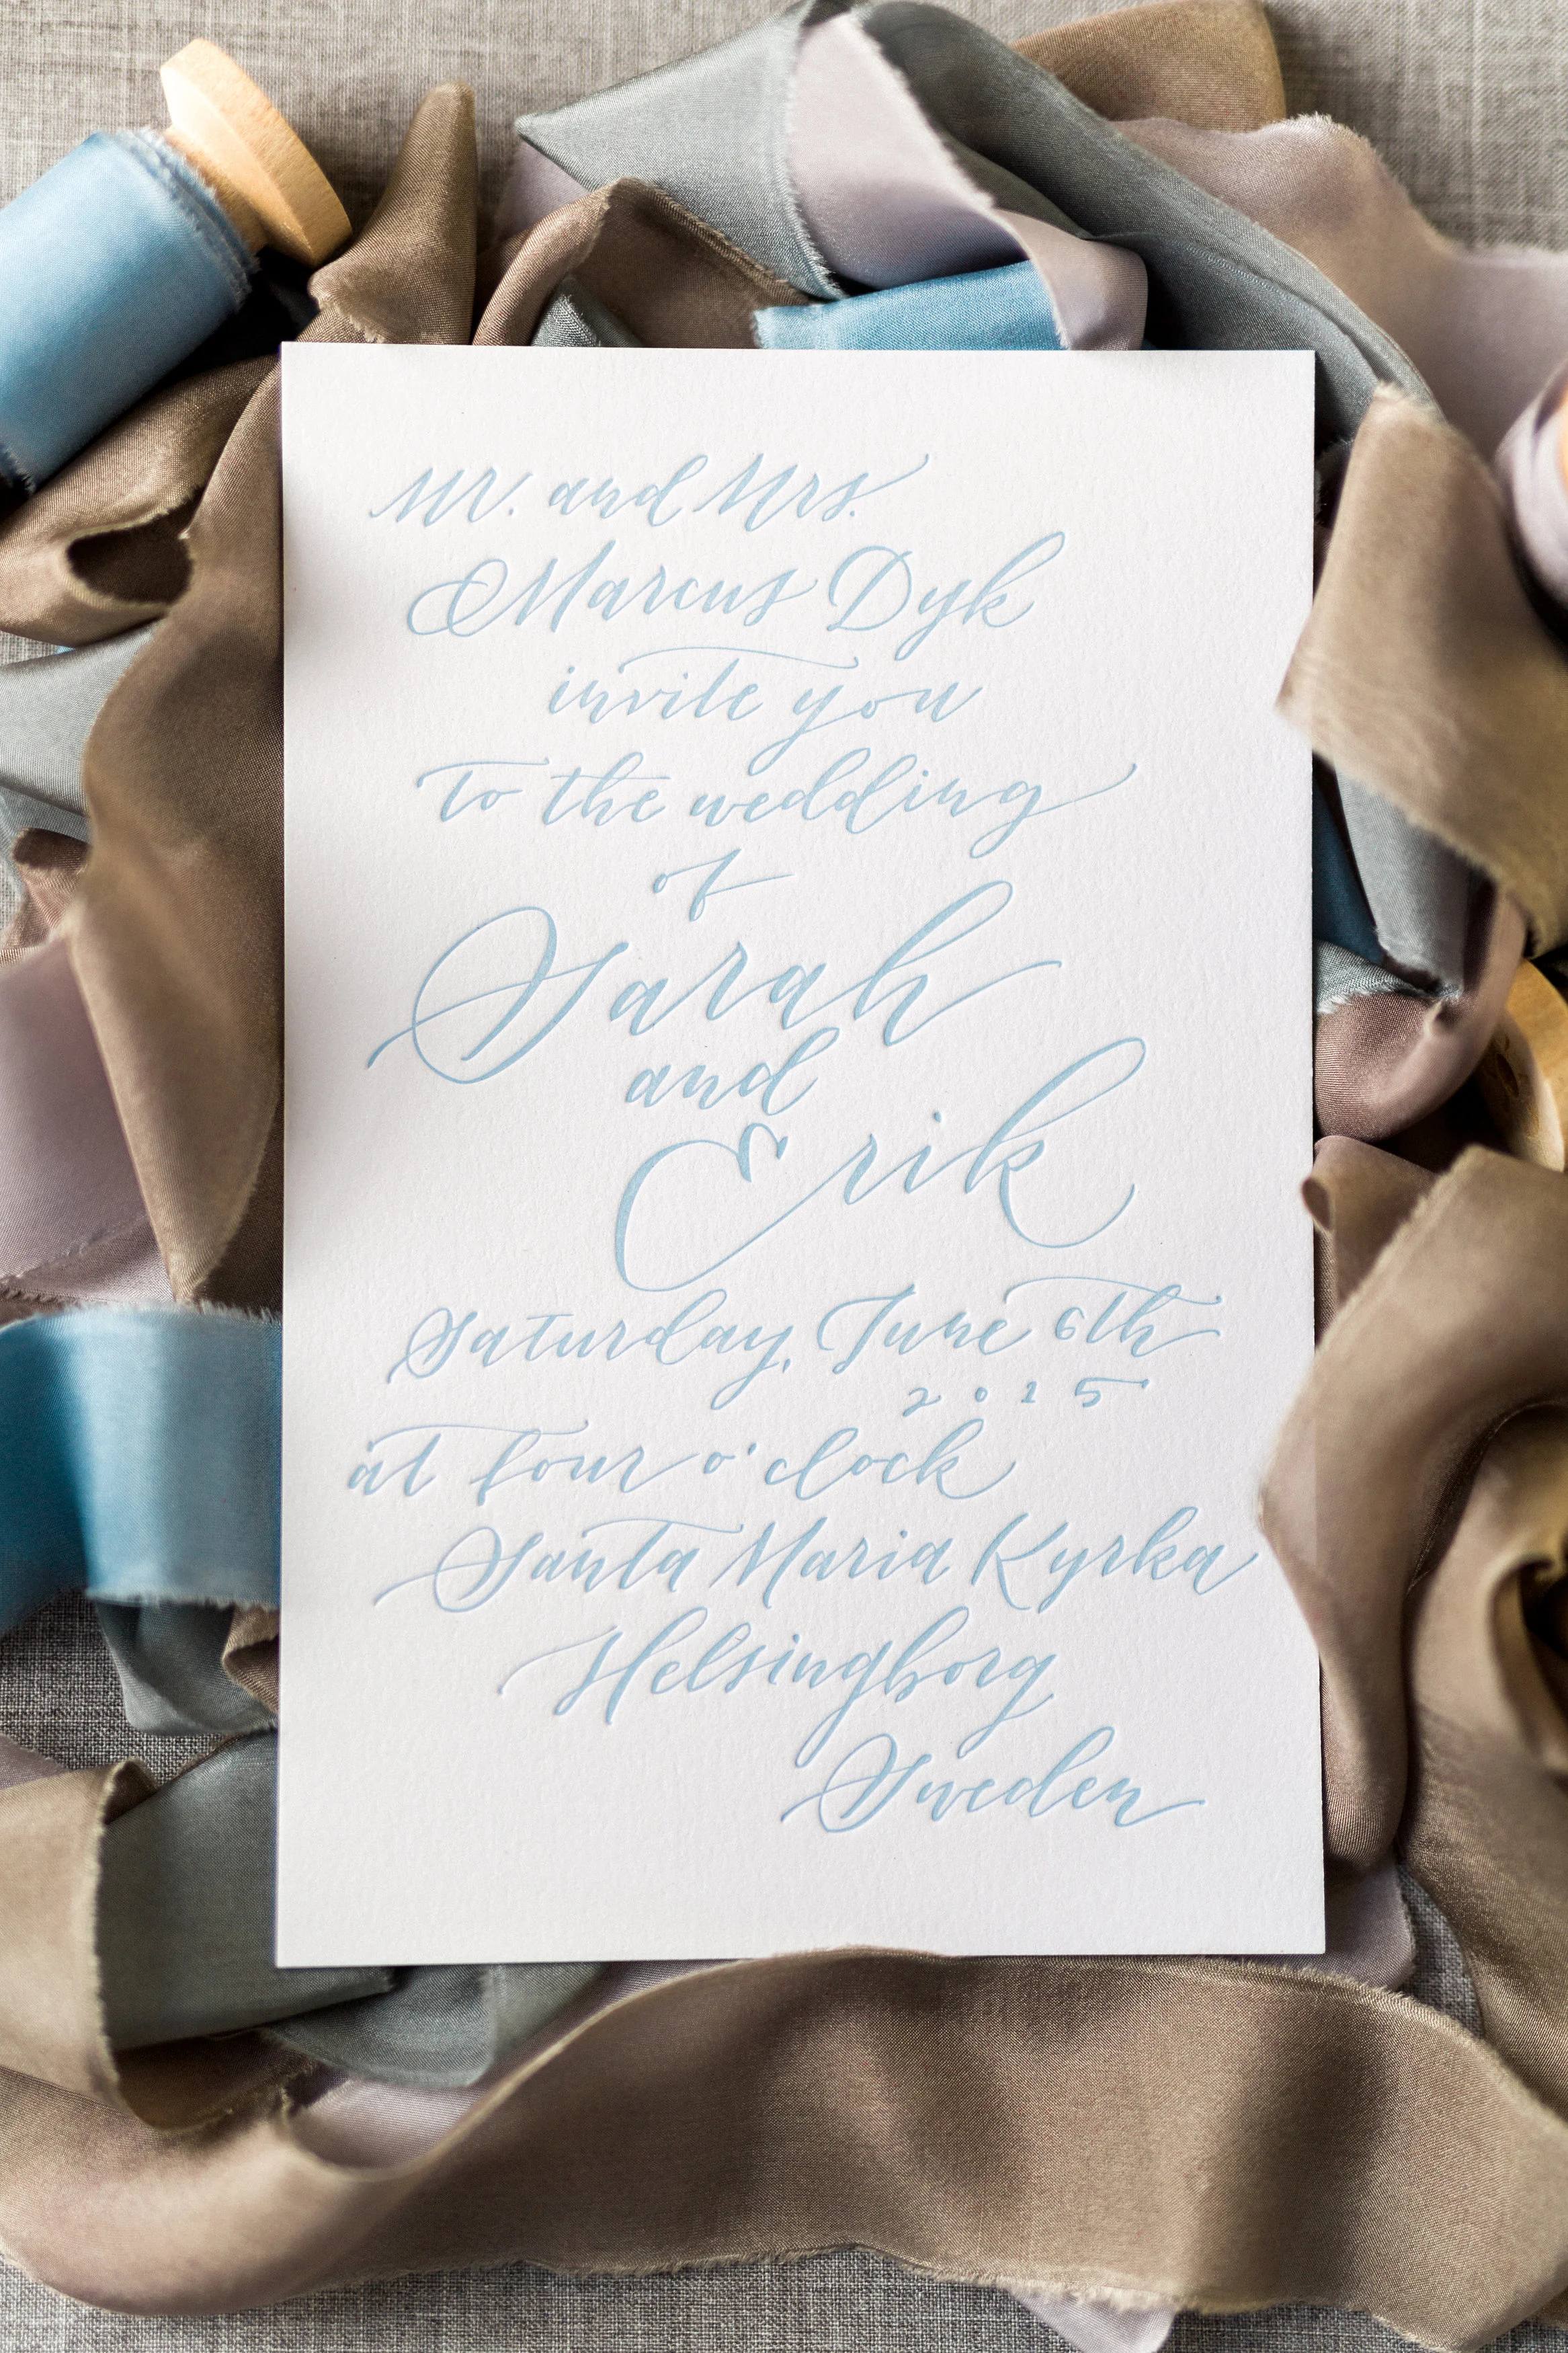 Mr. and Mrs.
Marcus Dyk
invite you
to the wedding
of
Sarah
and
Erik
Saturday, June 6th
2015
at four o'clock
Santa Maria Kyrka
Helsingborg
Sweden